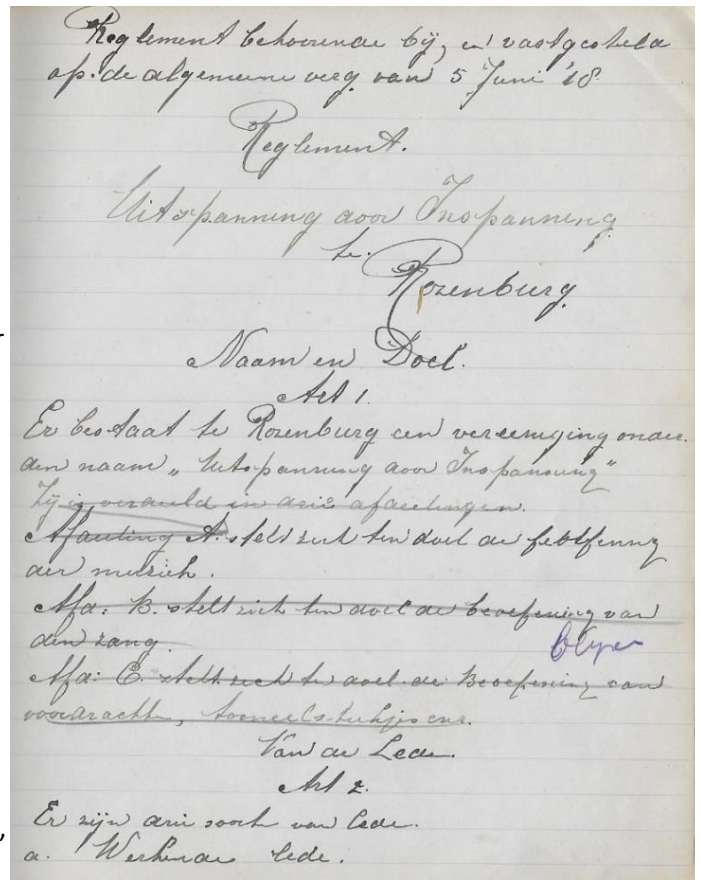 Reglement behoorende bij, en vastgesteld
op de algemeene verg van 5 Juni '18.
Reglement.
Uitspanning door Inspanning
te
Rozenburg
Naam en Doel.
Art 1.
Er bestaat te Rozenburg een vereeniging onder
den naam „ Uitspanning door Inspanning"
Zij is verdeeld in drie afdeelingen.
Afdeeling A. stelt zich ten doel de
der muziek.
Afd: B. stelt zich ten doel de beoefening van
den zang.
Afd: C. stelt zich te doel de Beoefening van
voordrachten, tooneelstukjes enz.
Van de Lede.
Art 2.
Er zijn drie soort van lede.
a. Werkende lede.